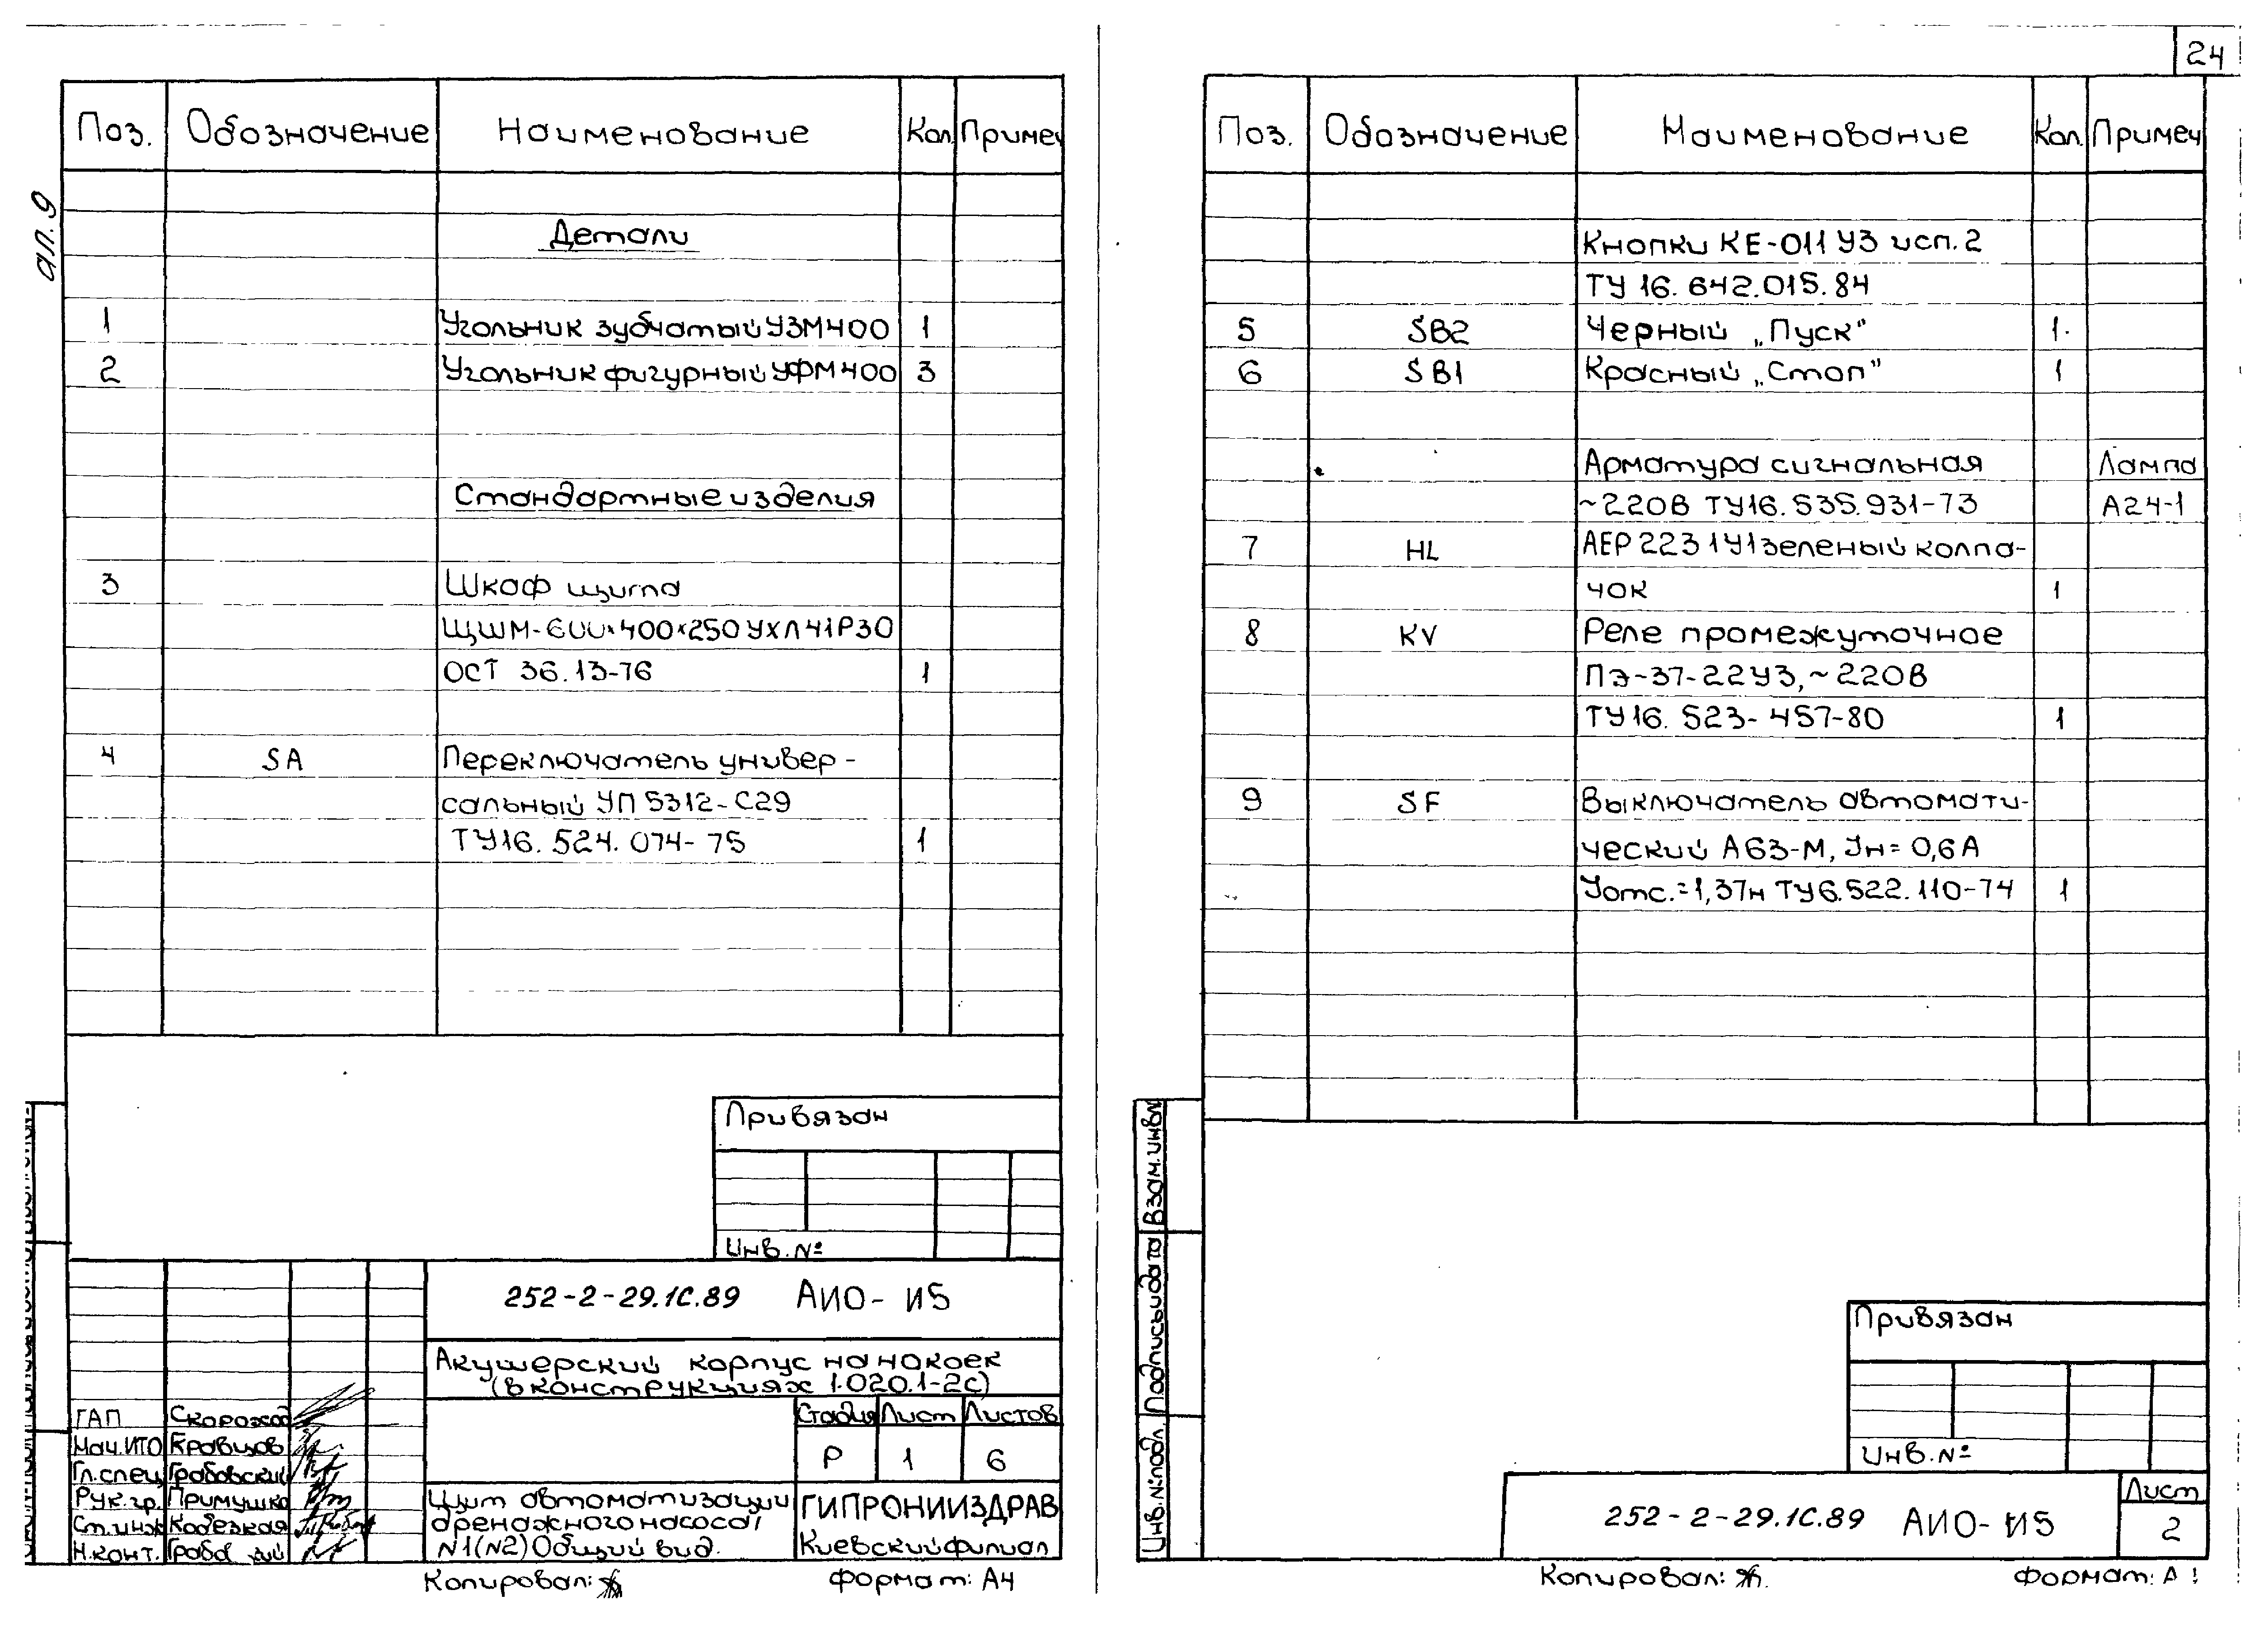 ал. 9
Поз. Обозначение Наименование Кол. Примеч
Детали
1 Угольник зубчатый УЗМ400 1
2 Угольник фигурный УФМ400 3
Стандартные изделия
3 Шкаф щита
ЩШМ-600×400×250УХЛ41Р30
ОСТ 36.13-76 1
4 SA Переключатель универ-
сальный УП5312-С29
ТУ16.524.074-75 1
Привязан
Инв.№
252-2-29.1С.89 АИО-И5
Акушерский корпус на коек
(в конструкциях 1.020.1-2с)
ГАП Скороход
Нач.ИТО Кравцов
Гл.спец Грабовский
Рук.гр. Примушко
Ст.инж
Н.конт.
Стадия Лист Листов
Р 1 6
Щит автоматизации
дренажного насоса
N1(N2) Общий вид.
ГИПРОНИИЗДРАВ
Киевский филиал
Копировал:
Формат: А4
24
Поз. Обозначение Наименование Кол. Примеч
Кнопки КЕ-011 У3 исп.2
ТУ 16.642.015.84
5 SB2 Черный „Пуск" 1
6 SB1 Красный „Стоп" 1
Арматура сигнальная Лампа
~220В ТУ16.535.931-73 А24-1
7 HL АЕР2231У1зеленый колпа-
чок 1
8 KV Реле промежуточное
ПЭ-37-22У3,~220В
ТУ16.523-457-80 1
9 SF Выключатель автомати-
ческий А63-М, Jн=0,6А
Jотс.=1,3Jн ТУ6.522.110-74 1
Взам.инв№
Подпись и дата
Инв.№подл.
Привязан
Инв.№
252-2-29.1С.89 АИО-И5
Лист
2
Копировал:
Формат: А